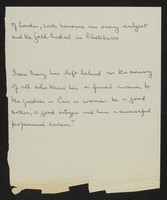 of London, with honours in every subject
and the Gold Medal in Obstetrics
Dame Mary has left behind in the memory
of all who knew her a final answer to
the question - Can a woman be a good
mother, a good citizen and have a successful
professional career?